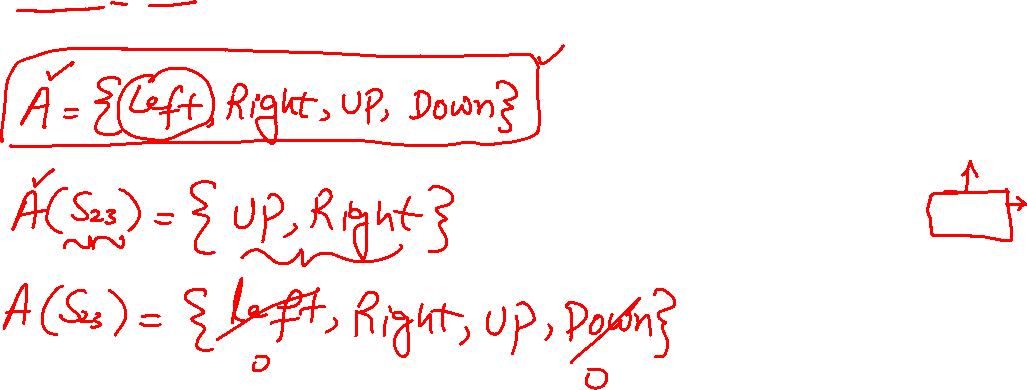 A = {Left, Right, UP, Down}
A(S23) = { UP, Right }
A(S23) = { Left, Right, UP, Down}
0 0